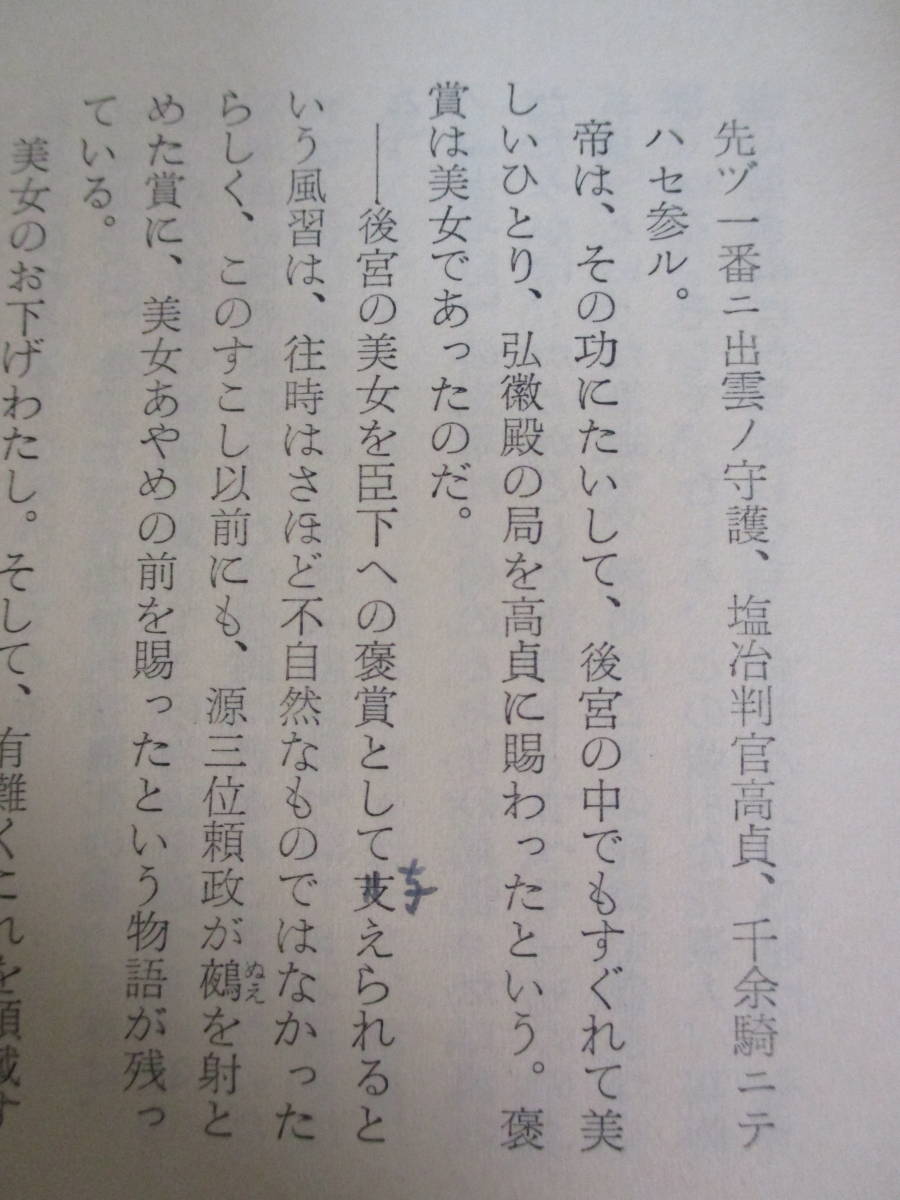 先ヅ一番ニ出雲ノ守護、塩冶判官高貞、千余騎ニテ
ハセ参ル。
帝は、その功にたいして、後宮の中でもすぐれて美
しいひとり、弘徽殿の局を高貞に賜わったという。褒
賞は美女であったのだ。
――後宮の美女を臣下への褒賞として支えられると
与
いう風習は、往時はさほど不自然なものではなかった
らしく、このすこし以前にも、源三位頼政が鵺を射と
ぬえ
めた賞に、美女あやめの前を賜ったという物語が残っ
ている。
美女のお下げわたし。そして、有難くこれを頂戴す